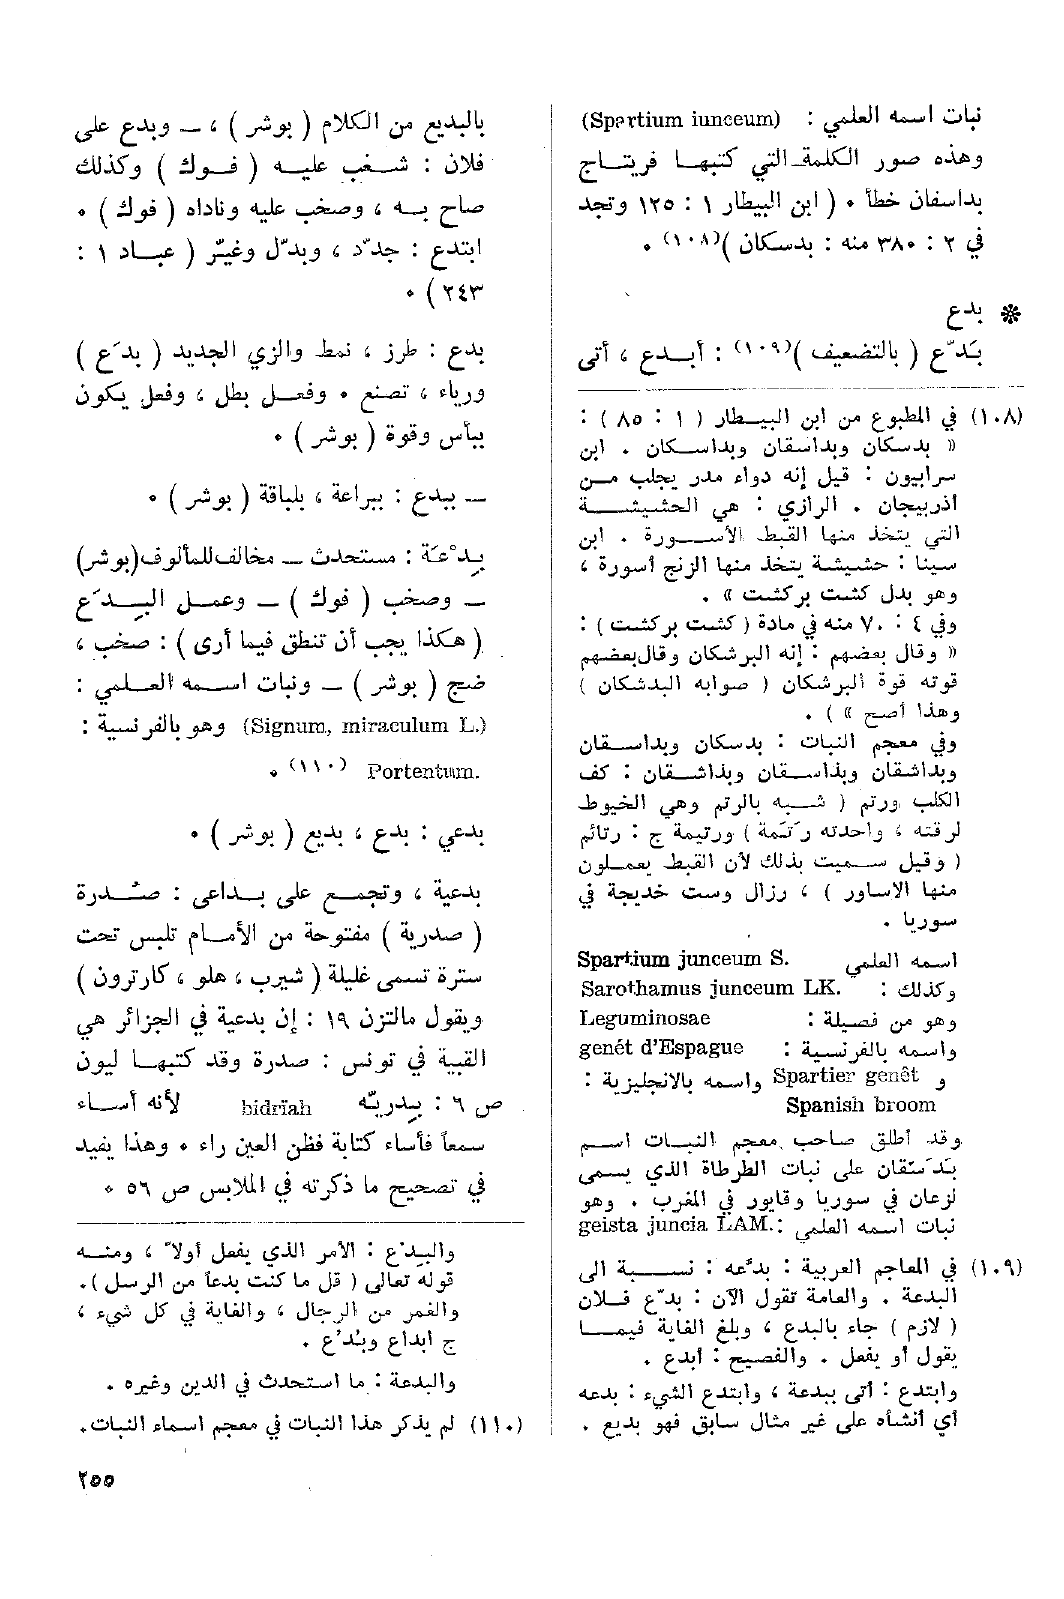 نبات اسمه العلمي : (Spartium iunceum)
وهذه صور الكلمة التي كتبها فريتاج
بداسفان خطأ . ( ابن البيطار ١ : ١٢٥ وتجد
في ٢ : ٣٨٠ منه : بدسكان )(١٠٨) .
❊ بدع
بَدّع ( بالتضعيف )(١٠٩) : أبدع ، أتى
بالبديع من الكلام ( بوشر ) ، — وبدع على
فلان : شغب عليه ( فوك ) وكذلك
صاح به ، وصخب عليه وناداه ( فوك ) .
ابتدع : جدّد ، وبدّل وغيّر ( عباد ١ :
٢٤٣ ) .
بدع : طرز ، نمط والزي الجديد ( بدَع )
ورياء ، تصنع . وفعل بطل ، وفعل يكون
ببأس وقوة ( بوشر ) .
— ببدع : ببراعة ، بلباقة ( بوشر ) .
بِدْعَة : مستحدث — مخالف للمألوف (بوشر)
— وصخب ( فوك ) — وعمل البِدَع
( هكذا يجب أن تنطق فيما أرى ) : صخب ،
ضج ( بوشر ) — ونبات اسمه العلمي :
(Signum, miraculum L.) وهو بالفرنسية :
Portentum. (١١٠) .
بدعي : بدع ، بديع ( بوشر ) .
بدعية ، وتجمع على بداعى : صُدرة
( صدرية ) مفتوحة من الأمام تلبس تحت
سترة تسمى غليلة ( شيرب ، هلو ، كارترون )
ويقول مالتزن ١٩ : إن بدعية في الجزائر هي
القبية في تونس : صدرة وقد كتبها ليون
ص ٦ : بِدريّه bidrïah لأنه أساء
سمعاً فأساء كتابة فظن العين راء . وهذا يفيد
في تصحيح ما ذكرته في الملابس ص ٥٦ .
(١٠٨) في المطبوع من ابن البيطار ( ١ : ٨٥ ) :
« بدسكان وبداسقان وبداسكان . ابن
سرابيون : قيل إنه دواء مدر يجلب من
أذربيجان . الرازي : هي الحشيشة
التي يتخذ منها القبط الأسورة . ابن
سينا : حشيشة يتخذ منها الزنج أسورة ،
وهو بدل كشت بركشت » .
وفي ٤ : ٧٠ منه في مادة ( كشت بركشت ) :
« وقال بعضهم : إنه البرشكان وقال بعضهم
قوته قوة البرشكان ( صوابه البدشكان )
وهذا أصح » ) .
وفي معجم النبات : بدسكان وبداسقان
وبداشقان وبذاسقان وبذاشقان : كف
الكلب ورتم ( شبه بالرتم وهي الخيوط
لرقته ، واحدته رَتَمة ) ورتيمة ج : رتائم
( وقيل سميت بذلك لأن القبط يعملون
منها الاساور ) ، رزال وست خديجة في
سوريا .
اسمه العلمي Spartium junceum S.
وكذلك : Sarothamus junceum LK.
وهو من فصيلة : Leguminosae
واسمه بالفرنسية : genét d'Espague
و Spartier genêt واسمه بالانجليزية :
Spanish broom
وقد أطلق صاحب معجم النبات اسم
بَدَسْقان على نبات الطرطاة الذي يسمى
لزعان في سوريا وقابور في المغرب . وهو
نبات اسمه العلمي :geista juncia LAM.
(١٠٩) في المعاجم العربية : بدّعه : نسبة الى
البدعة . والعامة تقول الآن : بدّع فلان
( لازم ) جاء بالبدع ، وبلغ الغاية فيما
يقول أو يفعل . والفصيح : أبدع .
وابتدع : أتى ببدعة ، وابتدع الشيء : بدعه
أي أنشأه على غير مثال سابق فهو بديع .
والبِدْع : الأمر الذي يفعل أولاً ، ومنه
قوله تعالى ( قل ما كنت بدعاً من الرسل ) .
والغمر من الرجال ، والغاية في كل شيء ،
ج ابداع وبُدُع .
والبدعة : ما استحدث في الدين وغيره .
(١١٠) لم يذكر هذا النبات في معجم اسماء النبات .
٢٥٥